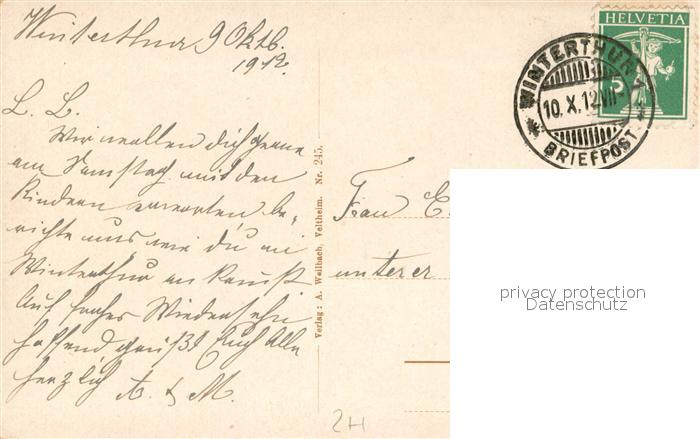 Winterthur 9 Oktb.
1912.
L. L.
Wir wollen dich gerne
am Samstag mit den
Kindern erwarten be-
richte uns wie du in
Winterthur an kommst
Auf frohes Wiedersehn
hoffend grüßt Euch Alle
herzlich A. & M.
Verlag: A. Weilbach, Veltheim. Nr. 245.
HELVETIA
5
WINTERTHUR 1
10. X. 12. VII-
BRIEFPOST
Frau E.
unterer
privacy protection
Datenschutz
2H